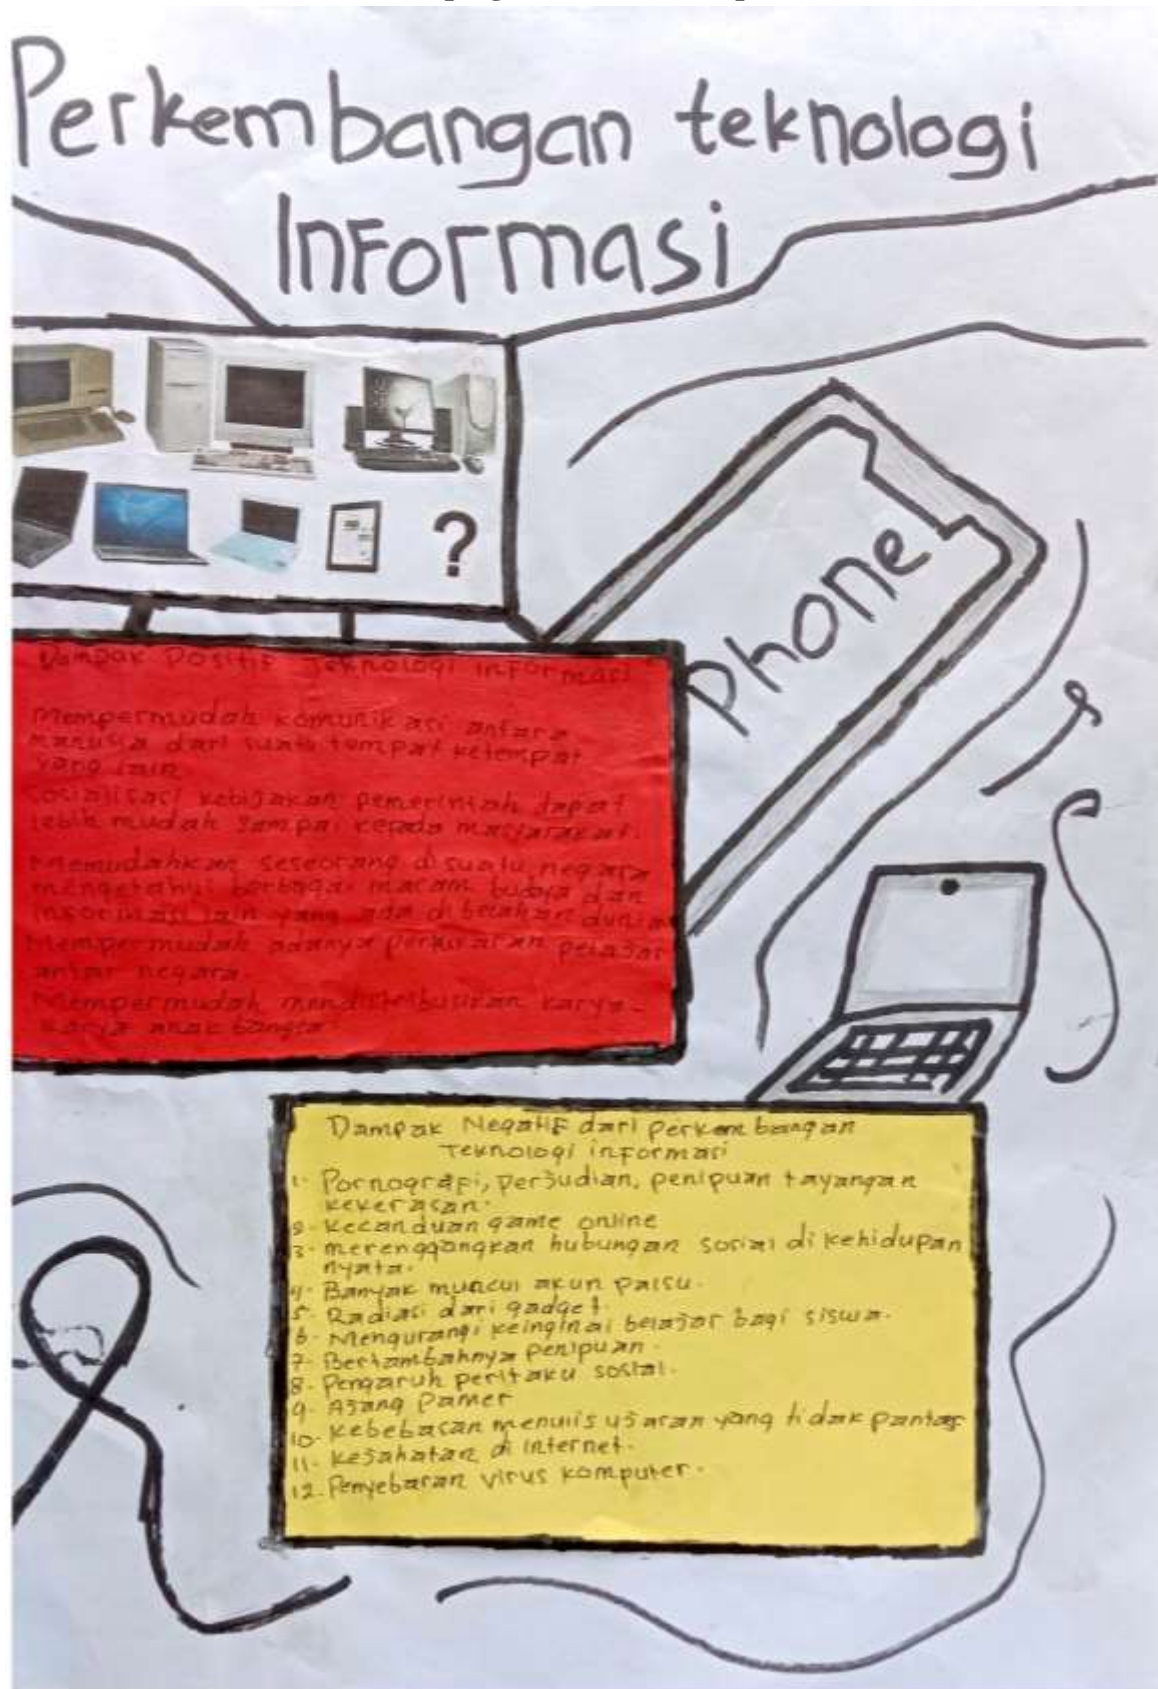 Perkembangan teknologi
Informasi
?
phone
Dampak Positif Teknologi informasi
Mempermudah komunikasi antara
manusia dari suatu tempat ketempat
yang lain.
Sosialisasi kebijakan pemerintah dapat
lebih mudah sampai kepada masyarakat.
Memudahkan seseorang disuatu negara
mengetahui berbagai macam budaya dan
informasi lain yang ada dibelahan dunia
Mempermudah adanya perkuraran pelajar
antar negara.
Mempermudah mendistribusikan karya-
karya anak bangsa
Dampak Negatif dari perkembangan
Teknologi informasi
1. Pornografi, perjudian, penipuan tayangan
kekerasan.
2. Kecanduan game online
3. merenggangkan hubungan sosial di kehidupan
nyata.
4. Banyak muncul akun palsu.
5. Radiasi dari gadget.
6. Mengurangi keinginai belajar bagi siswa.
7. Bertambahnya penipuan.
8. Pengaruh peritaku sosial.
9. Ajang Pamer
10. Kebebasan menulis ujaran yang tidak pantas
11. Kejahatan di internet.
12. Penyebaran virus komputer.